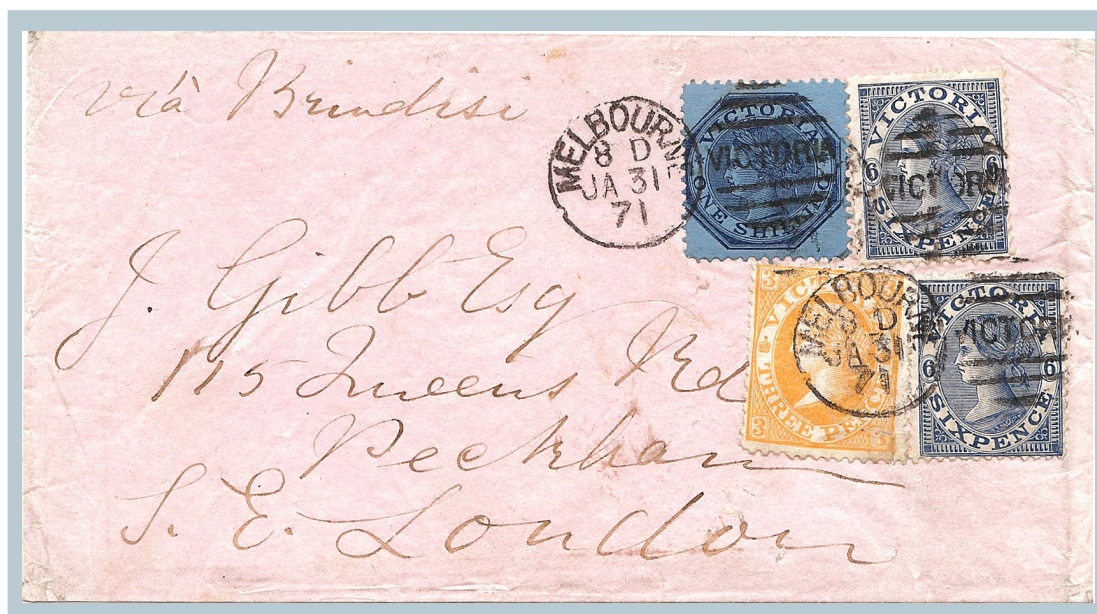 via Brindisi
MELBOURNE
8 D
JA 31
71
VICTORIA
VICTORIA
ONE SHILLING
VICTORIA
6 6
VICTORIA
SIXPENCE
J. Gibb Esq
115 Queens Rd
Peckham
S. E. London
3 VICTORIA
THREE PENCE
3 3
MELBOURNE
8 D
JA 31
71
VICTORIA
VICTORIA
6 6
SIXPENCE